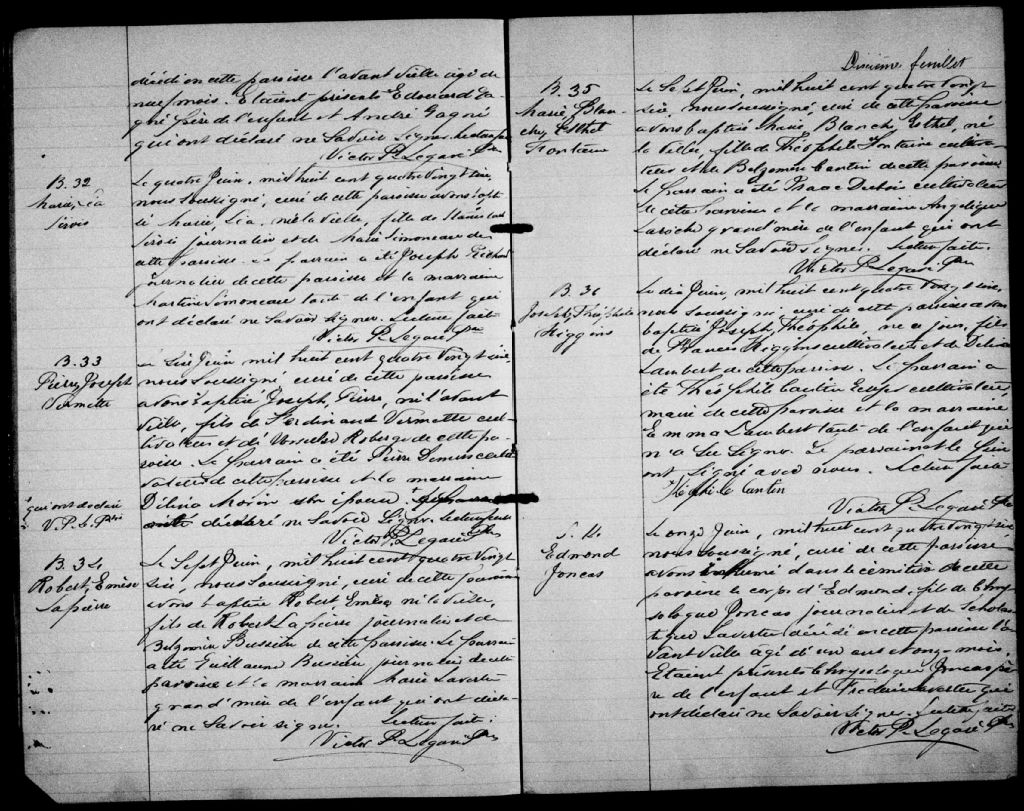 décédé en cette paroisse l'avant veille agé de
neuf mois. Etaient présents Edouard Ga
gné père de l'enfant et André Gagné
qui ont déclaré ne Savoir Signer. Lecture faite
Victor P. Legaré Ptre
B. 32
Marie, Léa
Sirois
Le quatre Juin, mil huit cent quatre vingt six,
nous soussigné, curé de cette paroisse avons bapti
sé Marie, Léa, née la veille, fille de Stanislas
Sirois journalier et de Marie Simoneau de
cette paroisse. Le parrain a été Joseph Richard
journalier de cette paroisse et la marraine
Martine Simoneau tante de l'enfant qui
ont déclaré ne Savoir signer. Lecture faite
Victor P. Legaré Ptre
B. 33
Pierre, Joseph
Vermette
Le Six Juin, mil huit cent quatre vingt six,
nous Soussigné, curé de cette paroisse
avons baptisé Joseph, Pierre, né l'avant
veille, fils de Ferdinand Vermette cul-
tivateur et de Ursule Roberge de cette pa-
roisse. Le parrain a été Pierre
de cette paroisse et la marraine
Délina Morin son épouse
déclaré ne Savoir Signer. Lecture faite
qui ont déclaré
V. P. L. Ptre
Victor P. Legaré Ptre
B. 34
Robert, Emile
Lapierre
Le Sept Juin, mil huit cent quatre vingt
six, nous Soussigné, curé de cette paroisse
avons baptisé Robert Emile, né la veille,
fils de Robert Lapierre journalier et de
Belzemire Bussière de cette paroisse. Le parrain
a été Guillaume Bussière journalier de cette
paroisse et la marraine Marie Laverte
grand'mère de l'enfant qui ont décla-
ré ne Savoir signer. Lecture faite.
Victor P. Legaré Ptre
Dixième feuillet
B. 35
Marie, Blan-
che, Esthel
Fontaine
Le Sept Juin, mil huit cent quatre vingt
six, nous soussigné, curé de cette paroisse
avons baptisé Marie, Blanche, Esthel, née
la veille, fille de Théophile Fontaine cultiva-
teur et de Belzemire Cantin de cette paroisse
Le parrain a été Isaac Dubois cultivateur
de cette paroisse et la marraine Angélique
Laroche grand mère de l'enfant qui ont
déclaré ne Savoir signer. Lecture faite.
Victor P. Legaré Ptre
B. 36
Joseph, Théophile
Higgins
Le dix Juin, mil huit cent quatre vingt six,
nous soussigné, curé de cette paroisse avons
baptisé Joseph, Théophile, né ce jour, fils
de Francis Higgins cultivateur et de
Lambert de cette paroisse. Le parrain a
été Théophile Cantin Ecuyer cultivateur,
maire de cette paroisse et la marraine
Emma Lambert tante de l'enfant qui
n'a Su Signer. Le parrain
ont Signé avec nous. Lecture faite
Théophile Cantin
Victor P. Legaré Ptre
S. 14
Edmond
Joncas
Le onze Juin, mil huit cent quatre vingt six
nous soussigné, curé de cette paroisse
avons inhumé dans le cimetière de cette
paroisse le corps d'Edmond, fils de Chry
sologue Joncas journalier et de Scholas-
tique Laverte décédé en cette paroisse l'a-
vant veille âgé d'un an et onze mois.
Etaient présents Chrysologue Joncas pè-
re de l'enfant et Frédéric Laverte qui
ont déclaré ne Savoir Signer. Lecture faite
Victor P. Legaré Ptre